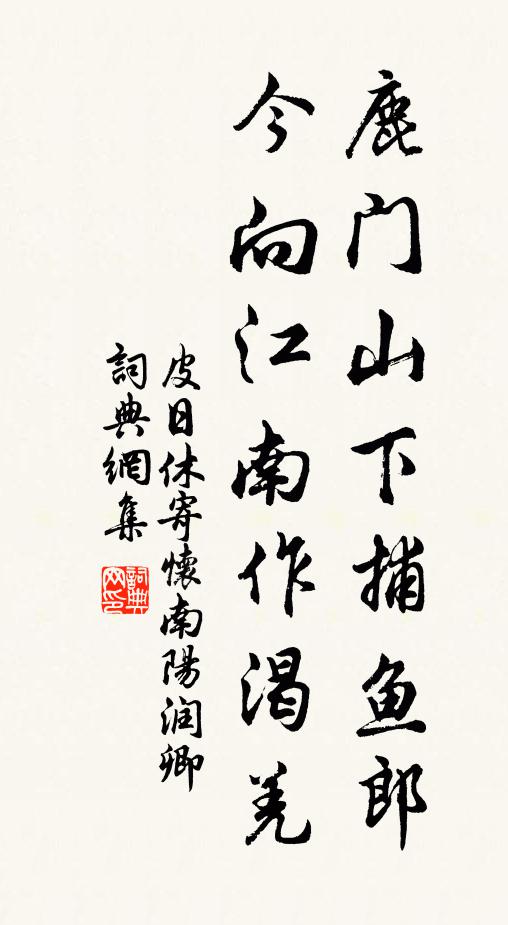 鹿门山下捕鱼郎
今向江南作渴羌
皮日休寄懷南陽润卿
詞典網集
詞典
网印